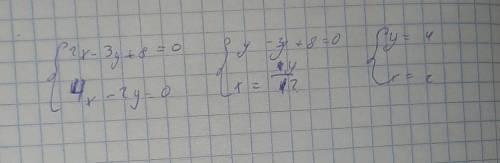 2x - 3y + 8 = 0
4x - 2y = 0
y - 3y + 8 = 0
x = y/2
y = 4
x = 2